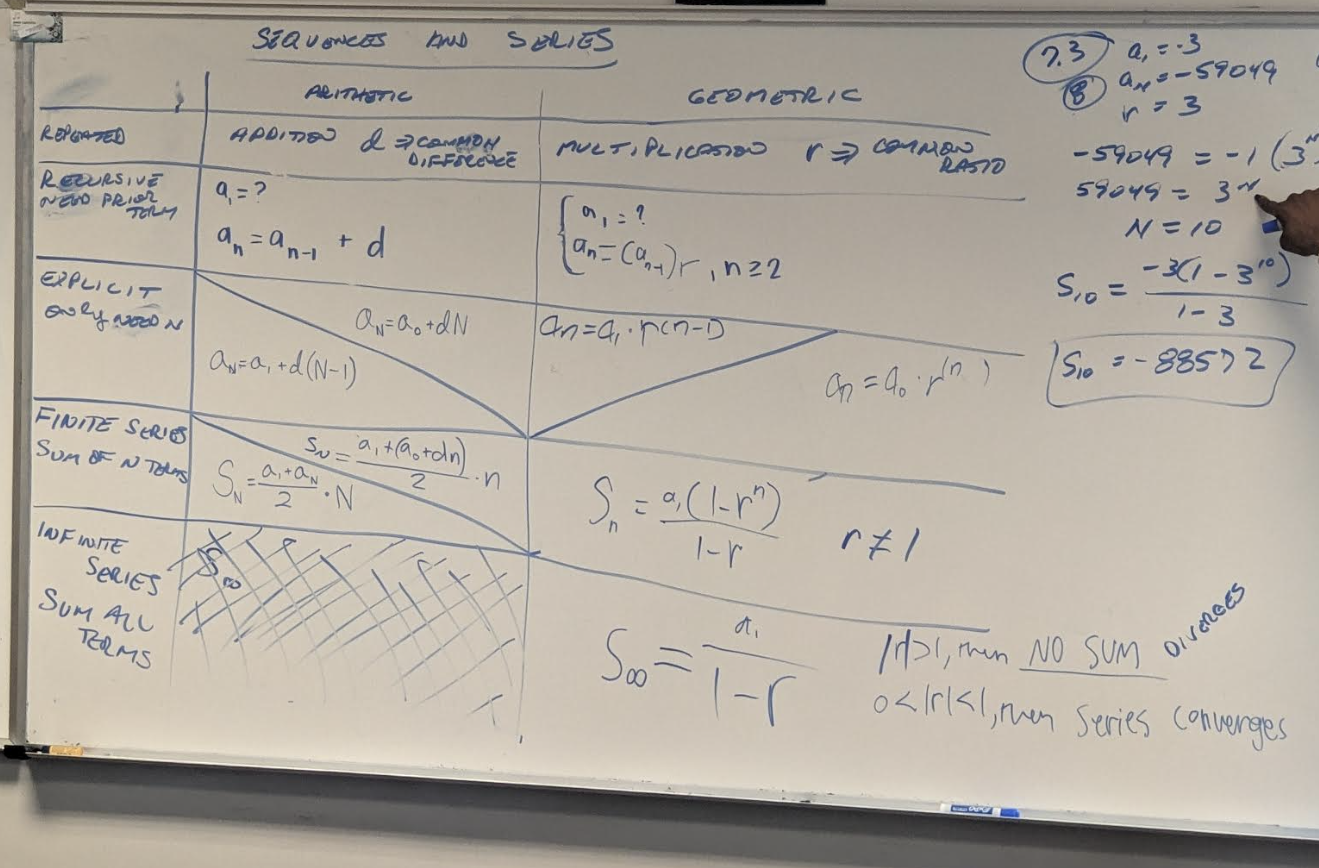 SEQUENCES AND SERIES
ARITHETIC
GEOMETRIC
REPEATED
ADDITION d ⇒ COMMON DIFFERENCE
MULTIPLICATION r ⇒ COMMON RATIO
RECURSIVE
NEED PRIOR
TERM
a₁ = ?
aₙ = aₙ₋₁ + d
a₁ = ?
aₙ = (aₙ₋₁)r, n ≥ 2
EXPLICIT
ONLY NEED N
a_N = a₀ + dN
a_N = a₁ + d(N-1)
aₙ = a₁ · r(n-1)
aₙ = a₀ · r⁽ⁿ⁾
FINITE SERIES
SUM OF N TERMS
S_N = a₁ + (a₀ + dn) / 2 · n
S_N = a₁ + a_N / 2 · N
Sₙ = a₁(1 - rⁿ) / 1 - r
r ≠ 1
INFINITE
SERIES
SUM ALL
TERMS
S∞
S∞ = a₁ / 1 - r
|r|>1, then NO SUM DIVERGES
0<|r|<1, then series converges
7.3
8
a₁ = -3
a_N = -59049
r = 3
-59049 = -1 (3
59049 = 3^N
N = 10
S₁₀ = -3(1 - 3¹⁰) / 1 - 3
S₁₀ = -88572